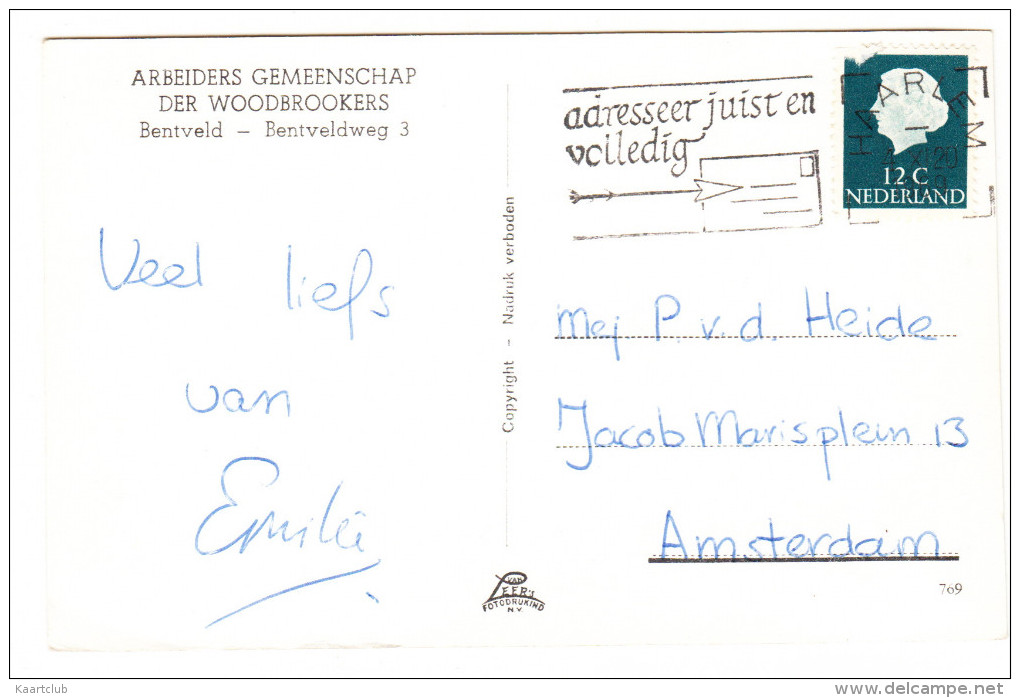 ARBEIDERS GEMEENSCHAP
DER WOODBROOKERS
Bentveld – Bentveldweg 3
Veel liefs
van
Emilie
Copyright - Nadruk verboden
adresseer juist en
volledig
HAARLEM
12 C
NEDERLAND
Mej P. v. d. Heide
Jacob Marisplein 13
Amsterdam
VAN
LEER'S
FOTODRUKIND
N.V.
769
Kaartclub
delcampe.net